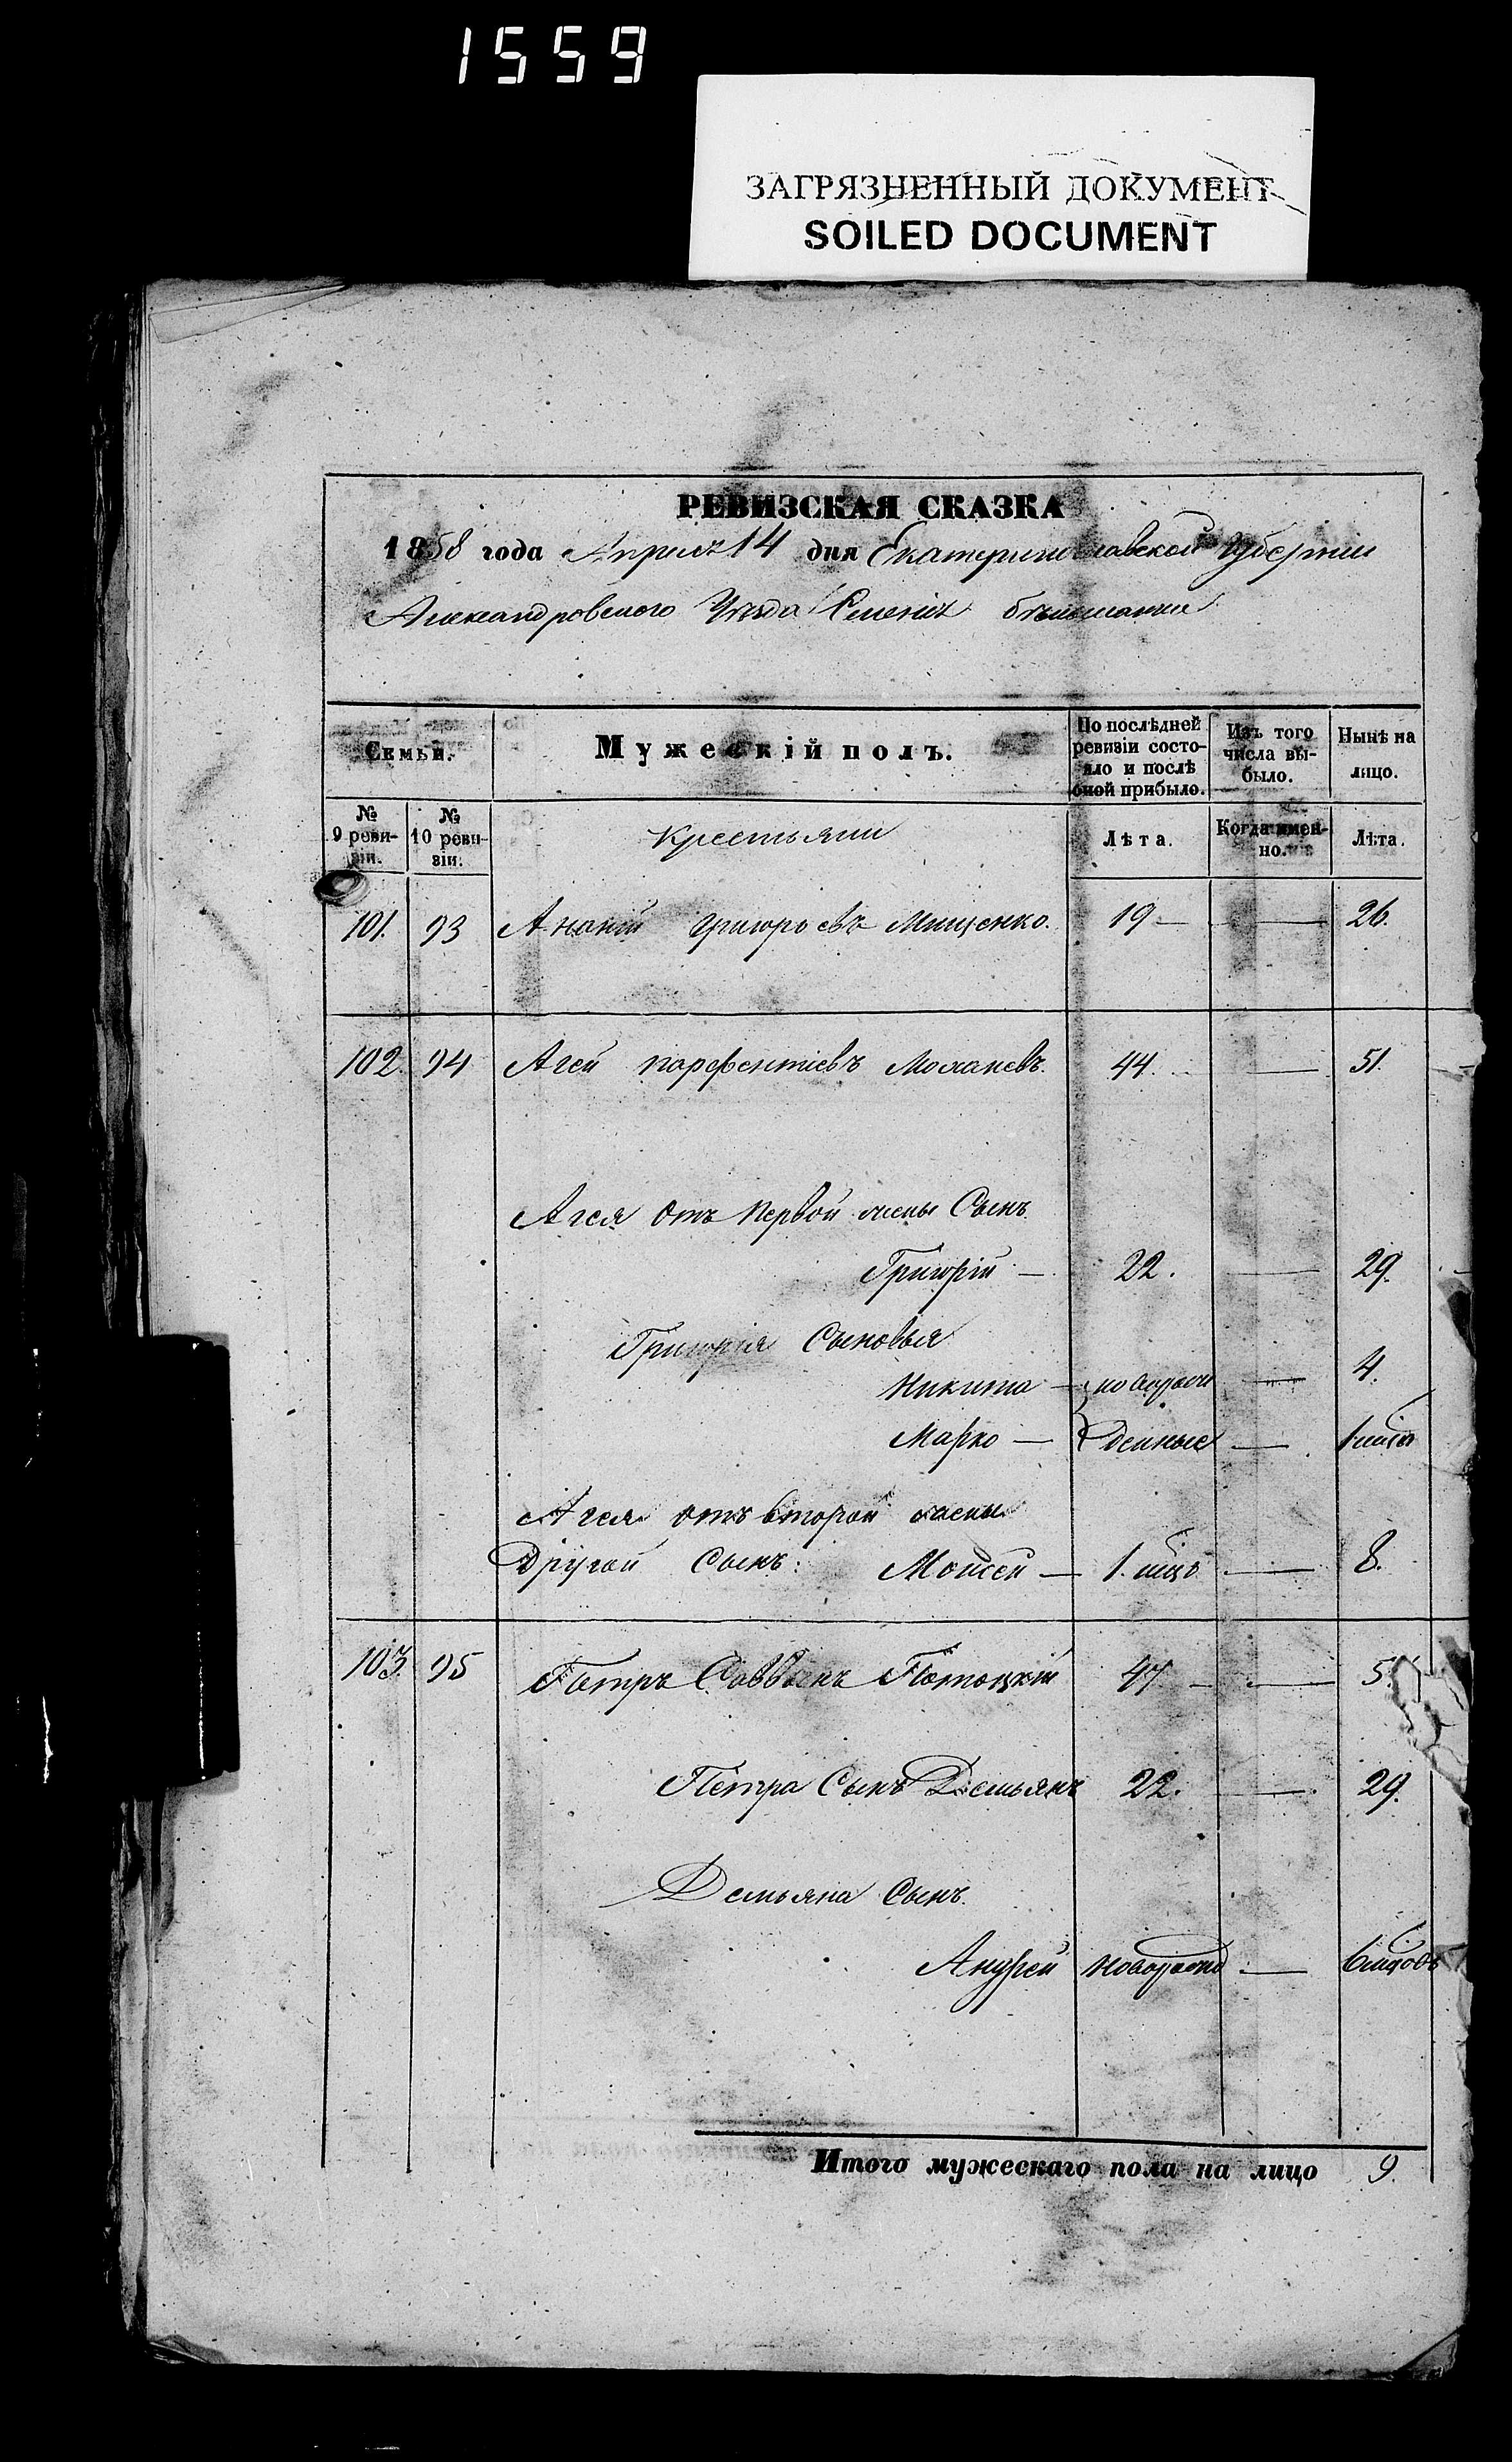 1559
ЗАГРЯЗНЕННЫЙ ДОКУМЕНТ
SOILED DOCUMENT
РЕВИЗСКАЯ СКАЗКА
1858 года Апреля 14 дня Екатеринославской Губерніи
Александровского Уезда Селенія
Семьи. Мужескій полъ. По послѣдней ревизіи состояло и послѣ оной прибыло. Изъ того числа выбыло. Нынѣ на лицо.
№ 9 ревизіи. № 10 ревизіи. Крестьяни Лѣта. Когда именно. Лѣта.
101. 93 Ананій Григорьевъ Мищенко. 19 — — 26.
102. 94 Агей Парфентіевъ 44. — 51.
Агея отъ первой жены Сынъ
Григорій — 22. — 29.
Григорія Сыновья
Никита — новорож — 4.
Марко — денные — 1
Агея отъ второй жены
Другой Сынъ: Моисей — 1. — 8.
103. 95 Петръ Саввинъ Потоцкій 47 — — 5
Петра Сынъ Демьянъ 22. — 29.
Демьяна Сынъ.
Андрей — 6
Итого мужескаго пола на лицо 9.